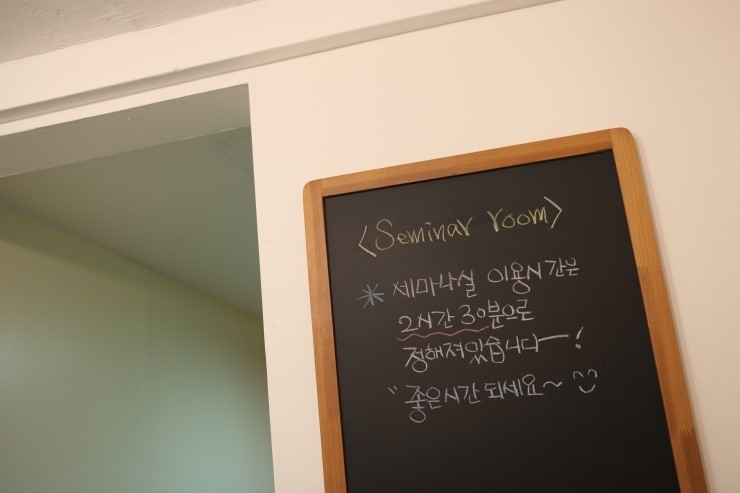 <Seminar room>
*세미나실 이용시간은
2시간 30분으로
정해져있습니다ー!
" 좋은시간 되세요~ ^^